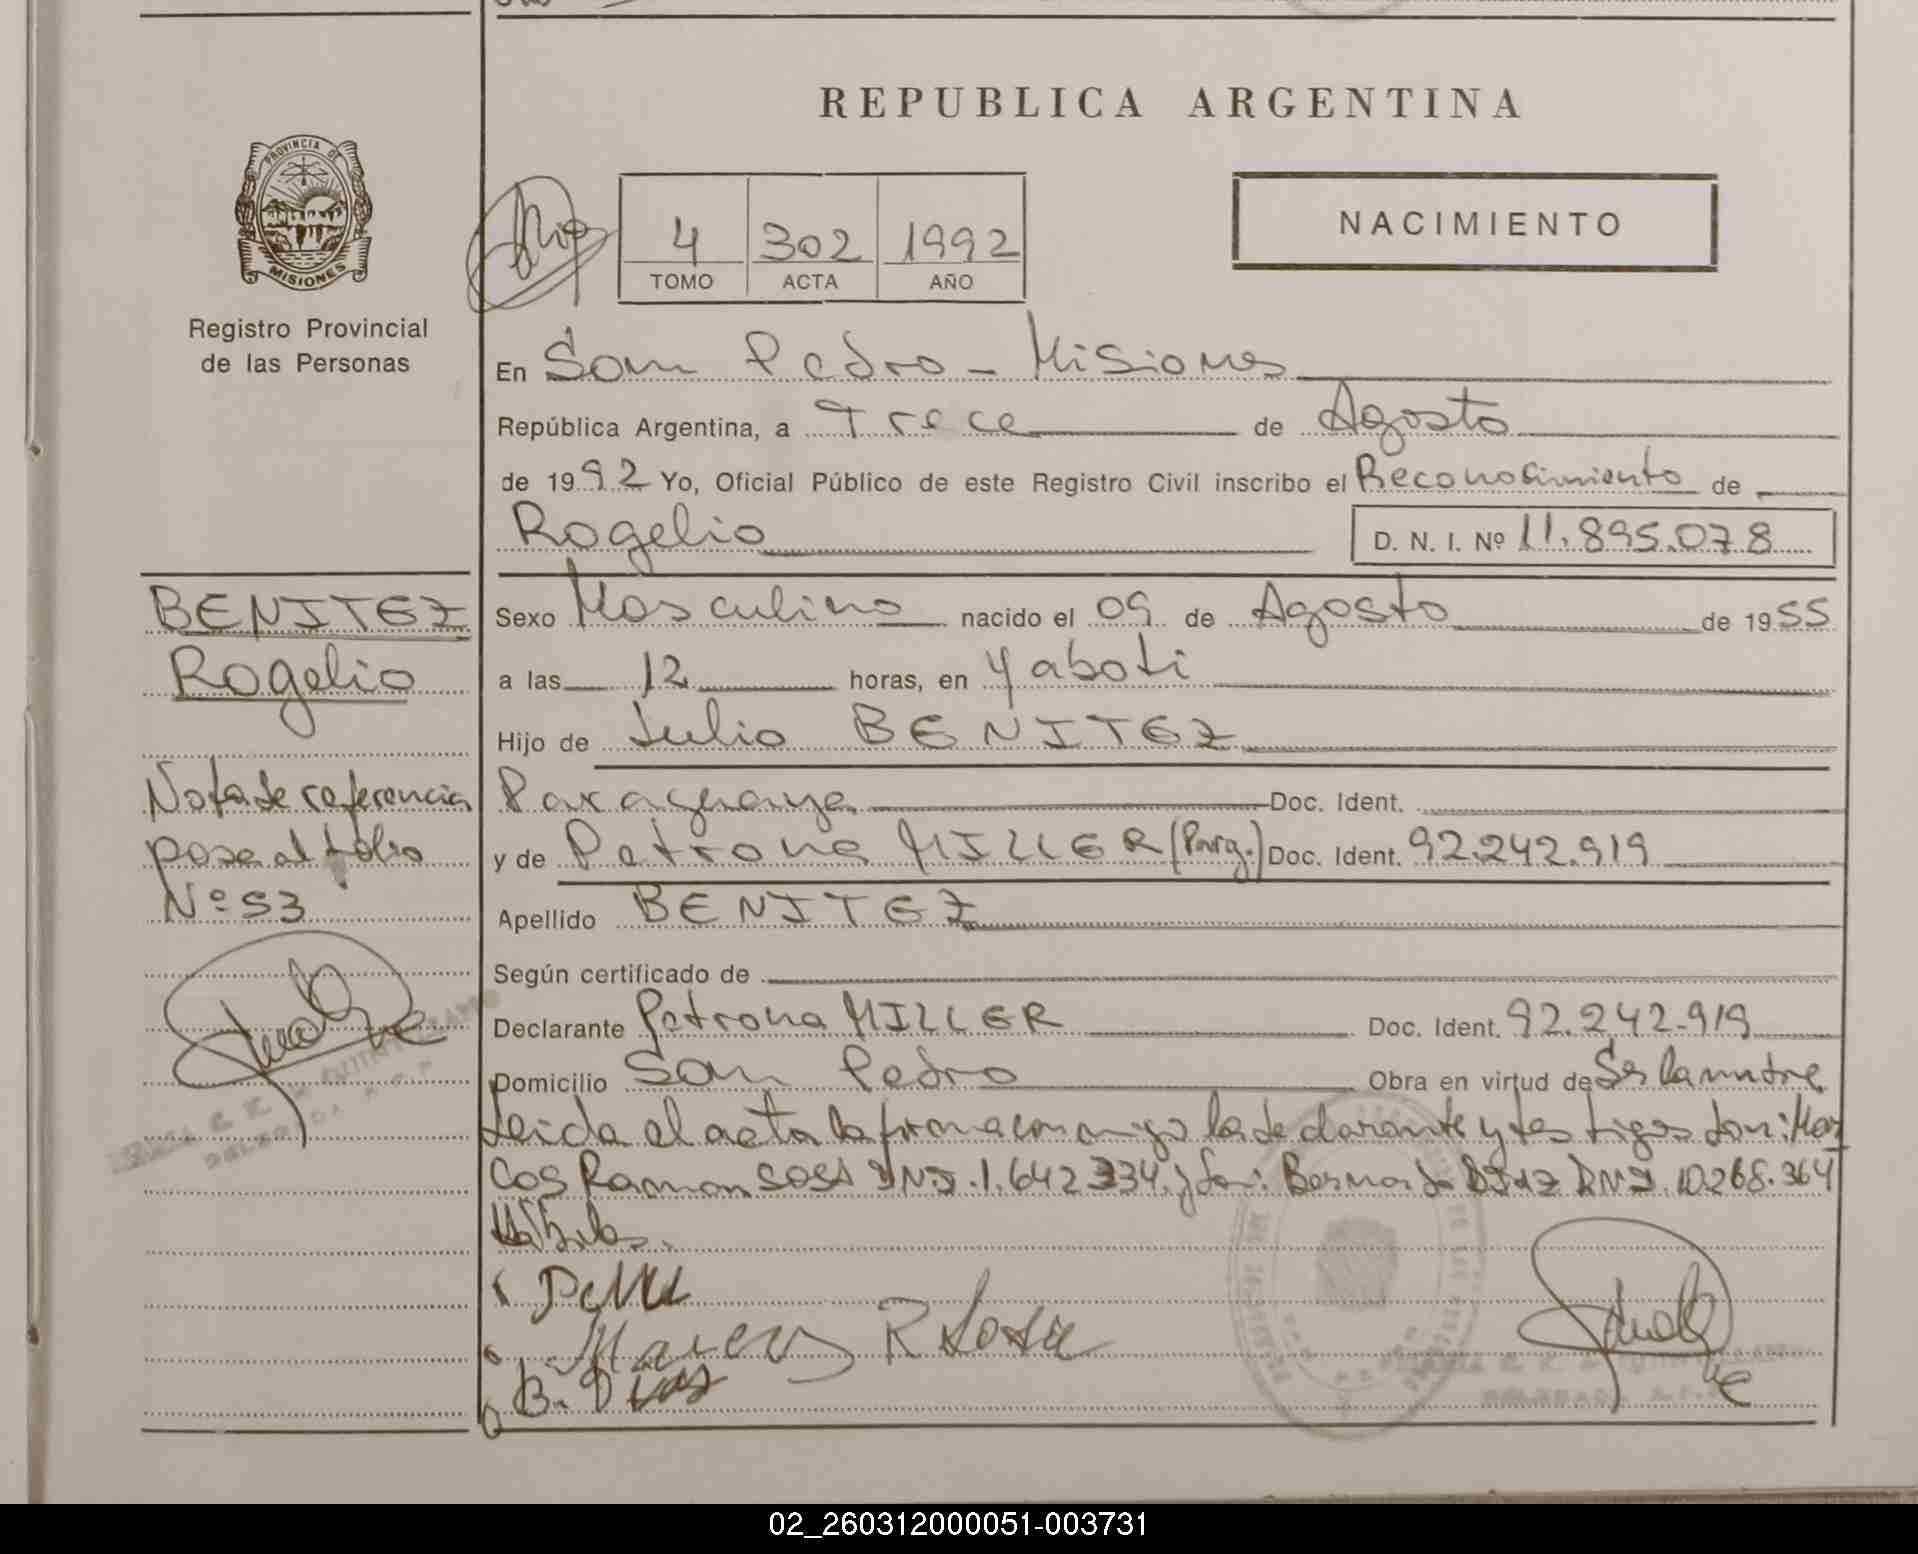 REPUBLICA ARGENTINA
PROVINCIA DE
MISIONES
Registro Provincial
de las Personas
NACIMIENTO
4 302 1992
TOMO ACTA AÑO
En San Pedro - Misiones
República Argentina, a Trece de Agosto
de 1992 Yo, Oficial Público de este Registro Civil inscribo el Reconosimiento de
Rogelio D. N. I. Nº 11.895.078
Sexo Masculino nacido el 09 de Agosto de 1955
a las 12 horas, en Yaboti
Hijo de Julio BENITEZ
Paraguaya Doc. Ident.
y de Petrona MILLER (Parg.) Doc. Ident. 92.242.919
Apellido BENITEZ
Según certificado de
Declarante Petrona MILLER Doc. Ident. 92.242.919
Domicilio San Pedro Obra en virtud de Ser la madre
Leida el acta la firma conmigo la declarante y testigos Don: Mar
cos Ramon SOSA DNI. 1.642.334 y Don: Bernardo DIAZ DNI. 10.268.364
Hábiles.
Marcos R Sosa
B. Dias
BENITEZ
Rogelio
Nota de referencia
pasa al folio
Nº 53
02_260312000051-003731